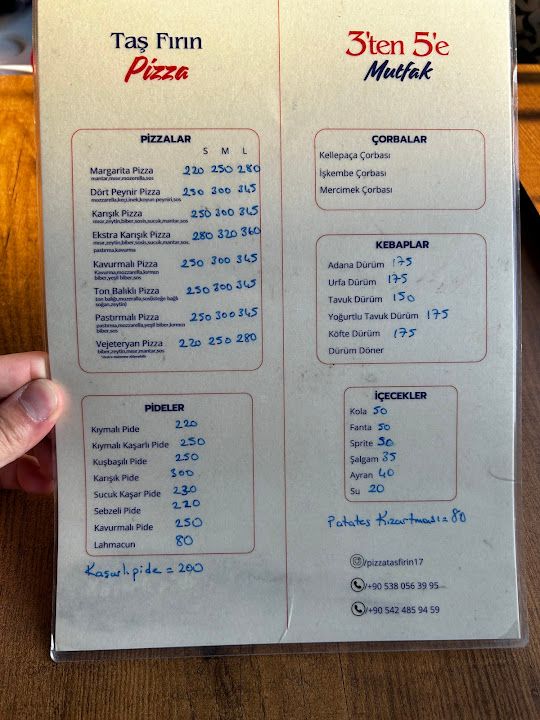 Taş Fırın
Pizza
PİZZALAR
S M L
Margarita Pizza 220 250 280
mantar,mısır,mozarella,sos
Dört Peynir Pizza 250 300 345
mozzarella,keçi,inek,koyun peyniri,sos
Karışık Pizza 250 300 345
mısır,zeytin,biber,sosis,sucuk,mantar,sos
Ekstra Karışık Pizza 280 320 360
mısır,zeytin,biber,sosis,sucuk,mantar,sos
pastırma,kavurma
Kavurmalı Pizza 250 300 345
Kavurma,mozzarella,kırmızı
biber,yeşil biber,sos
Ton Balıklı Pizza 250 300 345
ton balığı,mozerella,sos(isteğe bağlı
soğan,zeytin)
Pastırmalı Pizza 250 300 345
pastırma,mozzarella,yeşil biber,kırmızı
biber,sos
Vejeteryan Pizza 220 250 280
biber,zeytin,mısır,mantar,sos
PİDELER
Kıymalı Pide 220
Kıymalı Kaşarlı Pide 250
Kuşbaşılı Pide 250
Karışık Pide 300
Sucuk Kaşar Pide 230
Sebzeli Pide 220
Kavurmalı Pide 250
Lahmacun 80
Kaşarlı pide = 200
3'ten 5'e
Mutfak
ÇORBALAR
Kellepaça Çorbası
İşkembe Çorbası
Mercimek Çorbası
KEBAPLAR
Adana Dürüm 175
Urfa Dürüm 175
Tavuk Dürüm 150
Yoğurtlu Tavuk Dürüm 175
Köfte Dürüm 175
Dürüm Döner
İÇECEKLER
Kola 50
Fanta 50
Sprite 50
Şalgam 35
Ayran 40
Su 20
Patates Kızartması = 80
/pizzatasfirin17
/+90 538 056 39 95
/+90 542 485 94 59